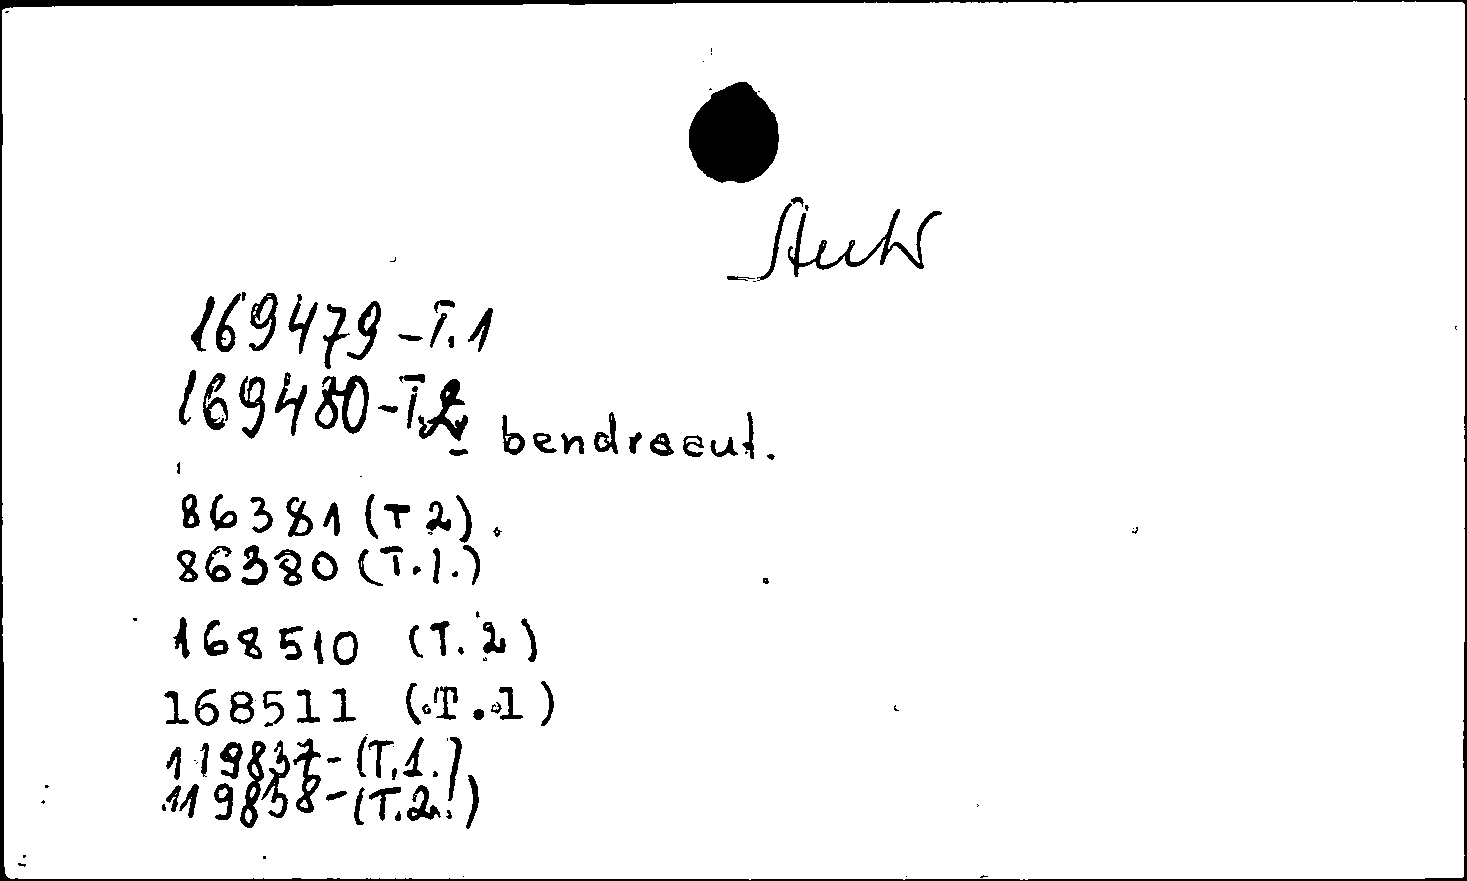 169479-T.1
169480-T.2
bendraaut.
86381 (T 2).
86380 (T.1.)
168510 (T. 2)
168511 (.T.1)
119837-(T.1.)
119838-(T.2.)